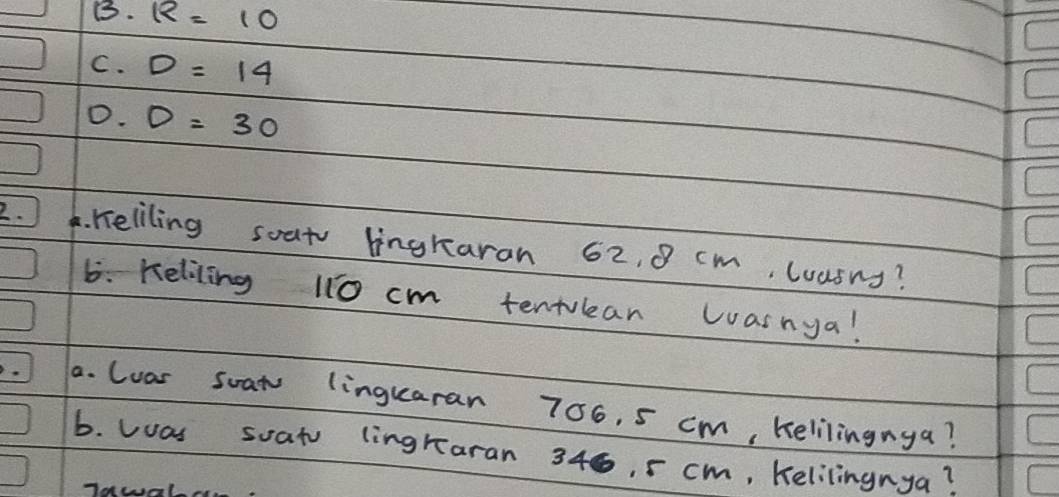 B. R = 10
C. D = 14
D. D = 30
2. a. Keliling suatu lingkaran 62,8 cm. Luasny?
b. Keliling 110 cm tentukan Luasnya!
a. Luas suatu lingkaran 706,5 cm, Kelilingnya?
b. Luas suatu lingkaran 346,5 cm, Kelilingnya?